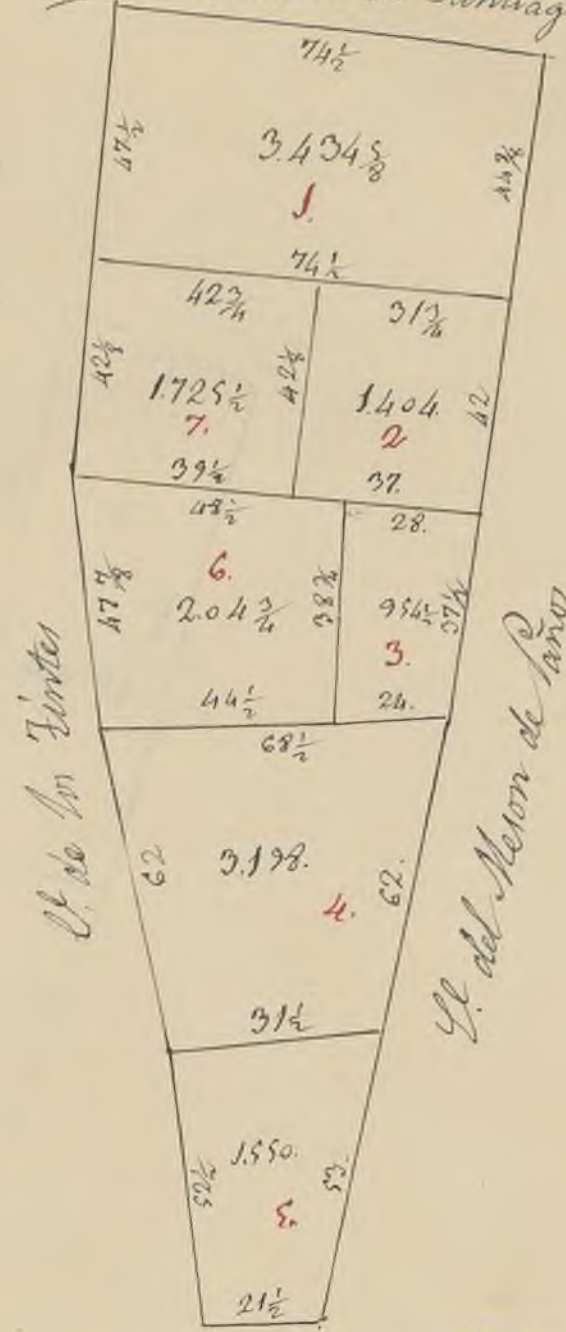 74 1/2
47 1/2
3.434 5/8
44 3/4
1.
74 1/2
42 3/4
31 3/4
42 1/8
1.725 1/2
42 1/8
1.404.
42
7.
2
39 1/2
37.
48 1/2
28.
6.
47 7/8
2.04 3/4
38 3/4
954 1/2
37 1/2
3.
44 1/2
24.
68 1/2
C. de los Tintes
62
3.198.
62.
4.
Cl. del Meson de Paños
31 1/2
1.550.
52 1/2
53.
5.
21 1/2